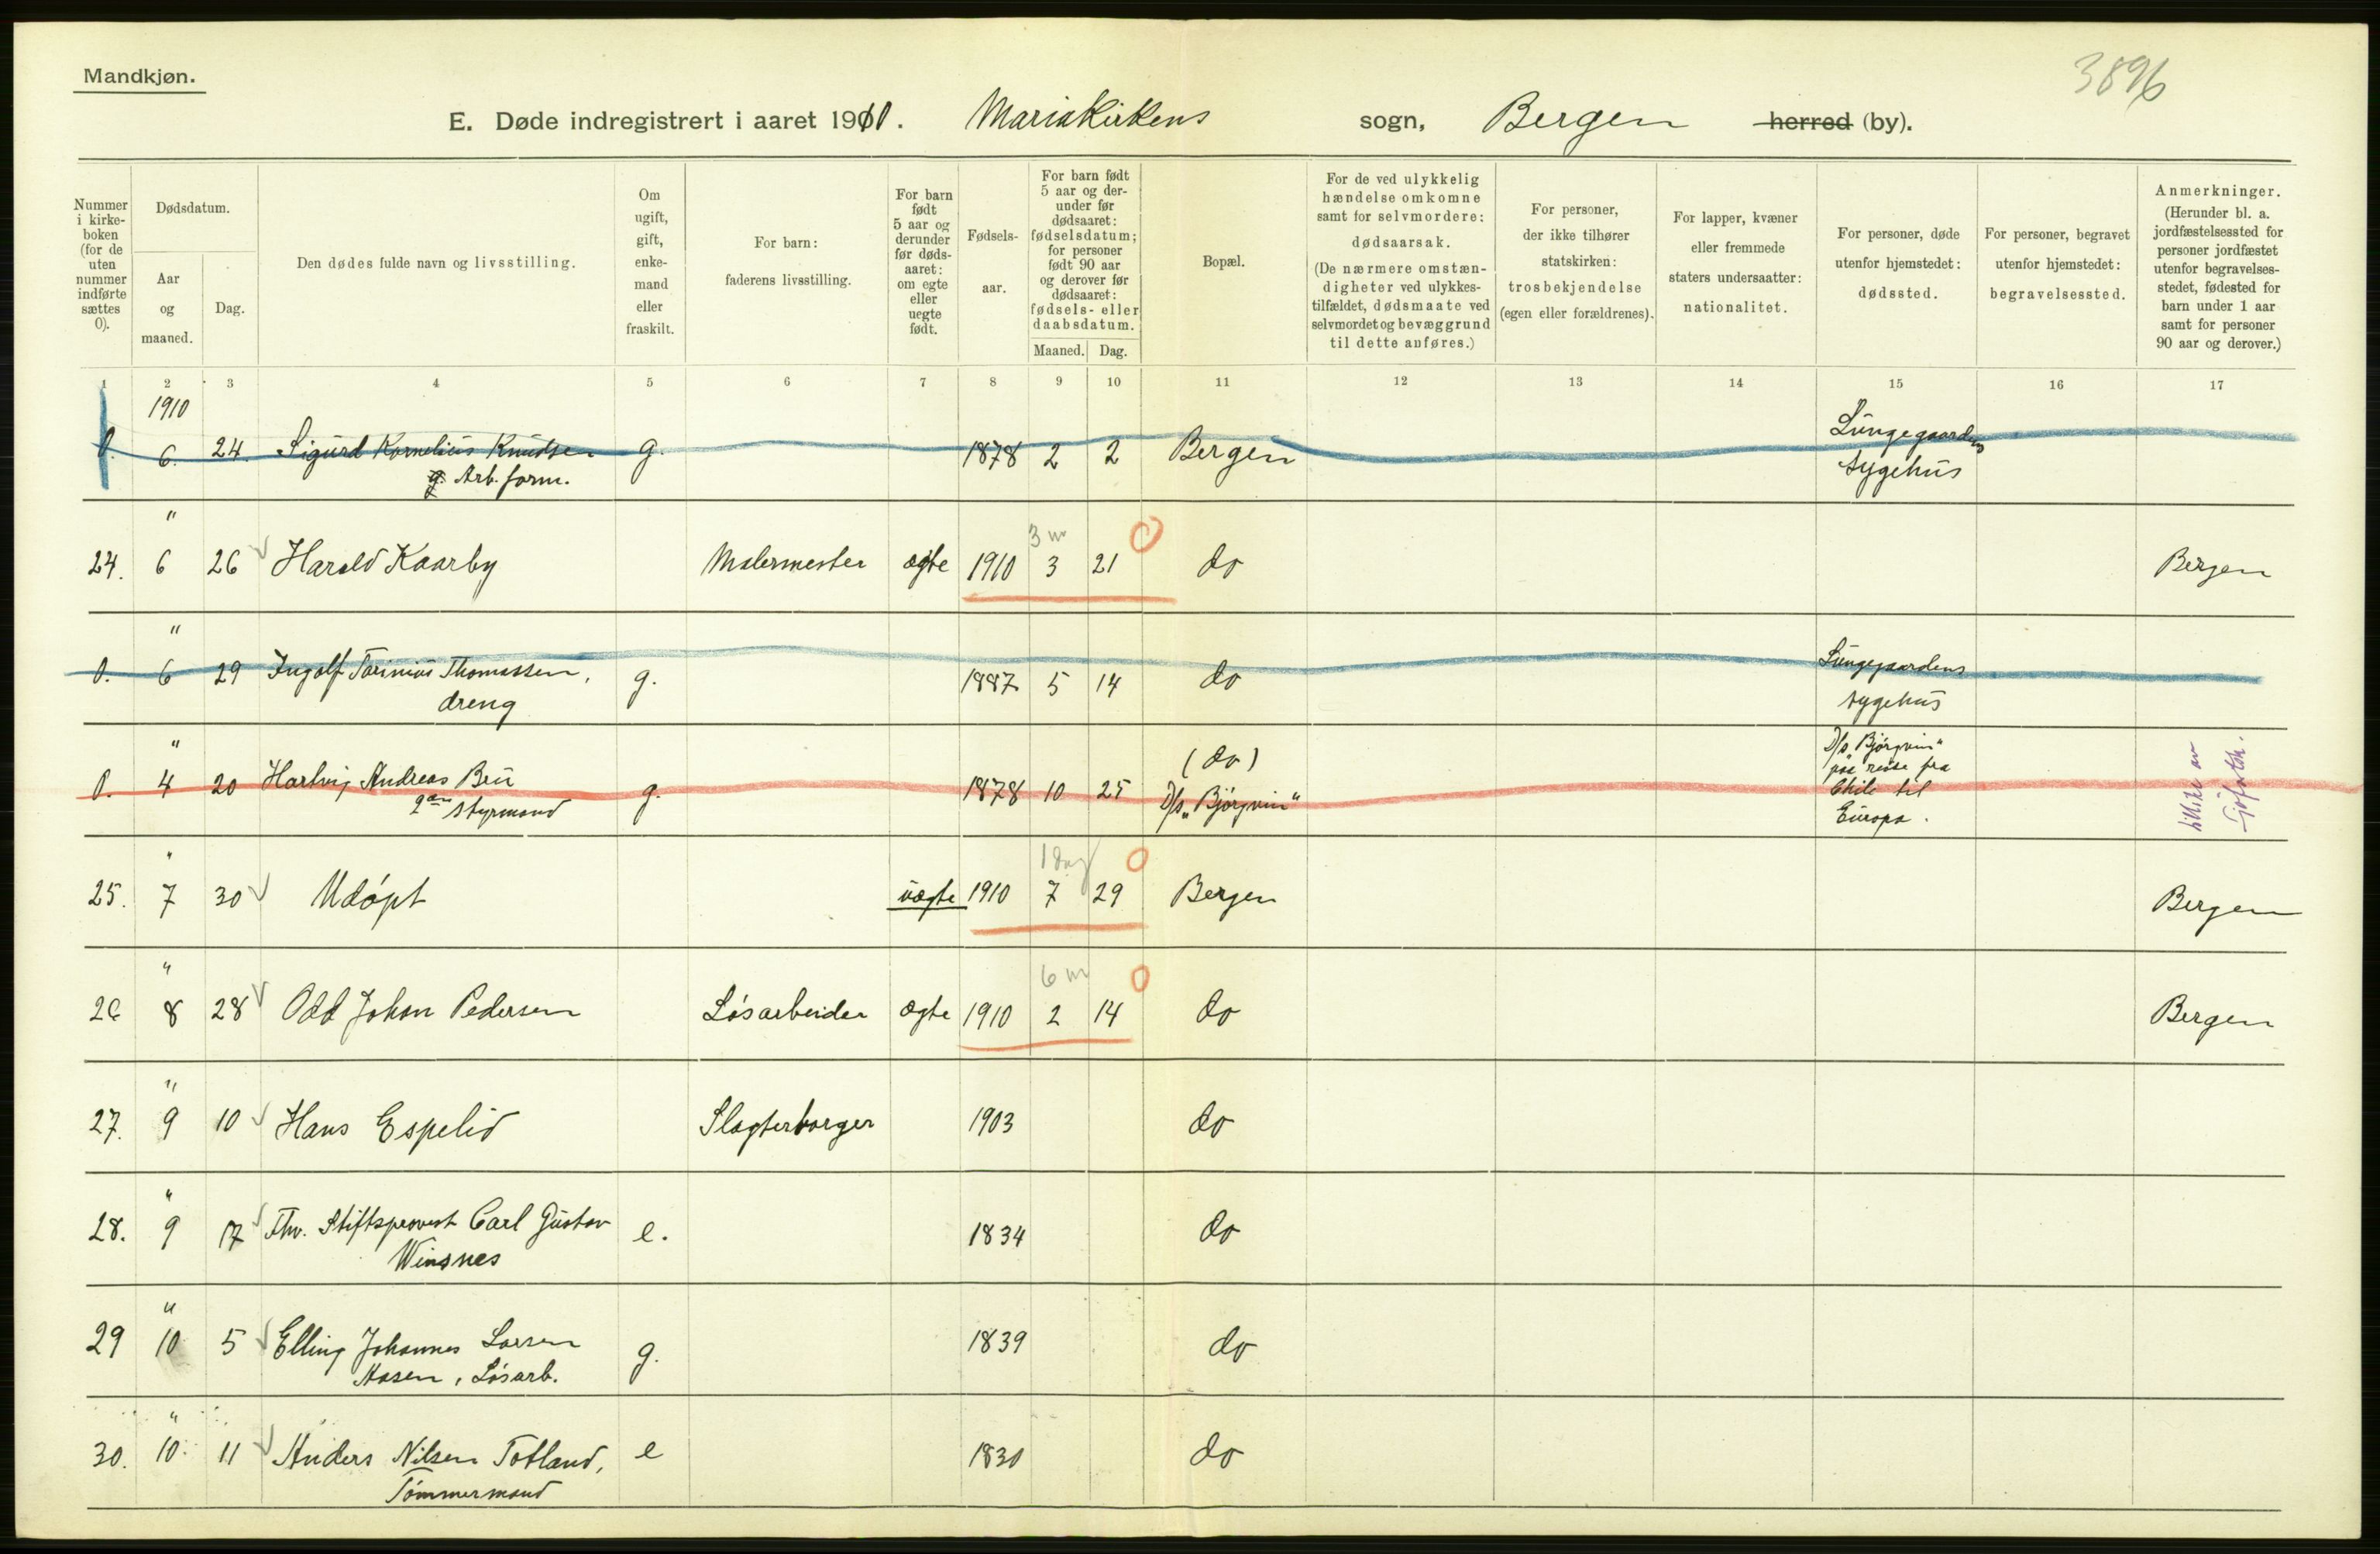 Mandkjøn.
3896
E. Døde indregistrert i aaret 1910. Mariakirkens sogn, Bergen herred (by).
Nummer i kirkeboken (for de uten nummer indførte sættes 0).
Dødsdatum.
Aar og maaned.
Dag.
Den dødes fulde navn og livsstilling.
Om ugift, gift, enkemand eller fraskilt.
For barn: faderens livsstilling.
For barn født 5 aar og derunder før dødsaaret: om egte eller uegte født.
Fødselsaar.
For barn født 5 aar og derunder før dødsaaret: fødselsdatum; for personer født 90 aar og derover før dødsaaret: fødsels- eller daabsdatum.
Maaned. Dag.
Bopæl.
For de ved ulykkelig hændelse omkomne samt for selvmordere: dødsaarsak. (De nærmere omstændigheter ved ulykkestilfældet, dødsmaate ved selvmordet og bevæggrund til dette anføres.)
For personer, der ikke tilhører statskirken: trosbekjendelse (egen eller forældrenes).
For lapper, kvæner eller fremmede staters undersaatter: nationalitet.
For personer, døde utenfor hjemstedet: dødssted.
For personer, begravet utenfor hjemstedet: begravelsessted.
Anmerkninger. (Herunder bl. a. jordfæstelsessted for personer jordfæstet utenfor begravelsesstedet, fødested for barn under 1 aar samt for personer 90 aar og derover.)
1 2 3 4 5 6 7 8 9 10 11 12 13 14 15 16 17
1910
0. 6. 24. Sigurd Kornelius Knudsen g. 1878 2 2 Bergen Lungegaardens
Arb. form. sygehus
"
24. 6 26 Harald Kaarby Malermester ægte 1910 3 21 do Bergen
3 m 0
"
0. 6 29 Ingolf Thomassen, g. 1887 5 14 do Lungegaardens
dreng sygehus
"
0. 4 20 Hartvig Andreas Bru g. 1878 10 25 (do) D/s "Björgvin"
2den styrmand D/s "Björgvin" paa reise fra
Chile til
Europa.
"
25. 7 30 Udøpt uægte 1910 7 29 Bergen Bergen
1 dag 0
"
26 8 28 Odd Johan Pedersen Løsarbeider ægte 1910 2 14 do Bergen
6 m 0
"
27. 9 10 Hans Espelid Slagterborger 1903 do
"
28. 9 17 Fhv. Stiftsprovst Carl Gustav e. 1834 do
Winsnes
"
29 10 5 Elling Johannes Larsen g. 1839 do
Aasen, Løsarb.
"
30. 10. 11 Anders Nilsen Totland, e 1830 do
Tømmermand